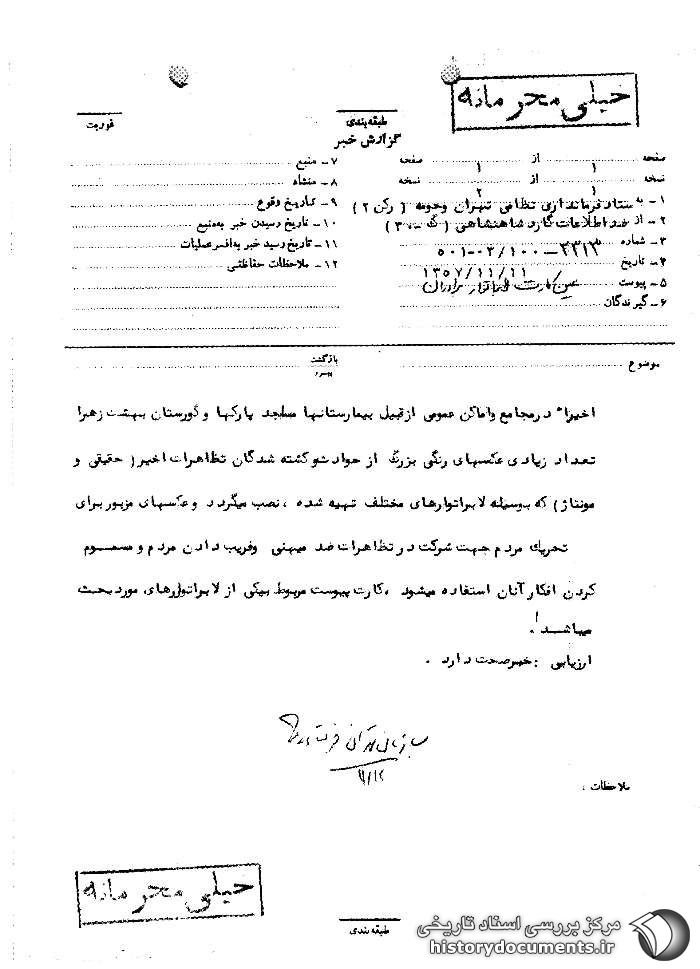 خیلی محرمانه
طبقه‌بندی
فوریت
گزارش خبر
صفحه ۱ از ۱ صفحه
نسخه ۱ از ۲ نسخه
۱ - به ستاد فرمانداری نظامی تهران وحومه ( رکن ۲ )
۲ - از ضد اطلاعات گارد شاهنشاهی ( گ ۳۰۰ )
۳ - شماره ۳۳۱۳-۵۰۱-۰۳/۱۰۰
۴ - تاریخ ۱۳۵۷/۱۱/۱۱
۵ - پیوست عین کارت لابراتوار برادران
۶ - گیرندگان
۷ - منبع
۸ - منشاء
۹ - تاریخ وقوع
۱۰ - تاریخ رسیدن خبر به‌منبع
۱۱ - تاریخ رسید خبر به‌افسرعملیات
۱۲ - ملاحظات حفاظتی
موضوع
بازگشت
پیرو
اخیرا" درمجامع واماکن عمومی ازقبیل بیمارستانها مساجد پارکها وگورستان بهشت زهرا
تعداد زیادی عکسهای رنگی بزرگ از حوادث‌وکشته شدگان تظاهرات اخیر( حقیقی و
مونتاژ) که بوسیله لابراتوارهای مختلف تهیه شده ، نصب میگردد وعکسهای مزبوربرای
تحریك مردم جهت شرکت درتظاهرات ضد میهنی وفریب دادن مردم و مسموم
کردن افکارآنان استفاده میشود ،کارت پیوست مربوط بیکی از لابراتوارهای موردبحث
میباشد .
ارزیابی : خبرصحت دارد .
۱۱/۱۲
ملاحظات :
خیلی محرمانه
طبقه بندی
مرکز بررسی اسناد تاریخی
historydocuments.ir